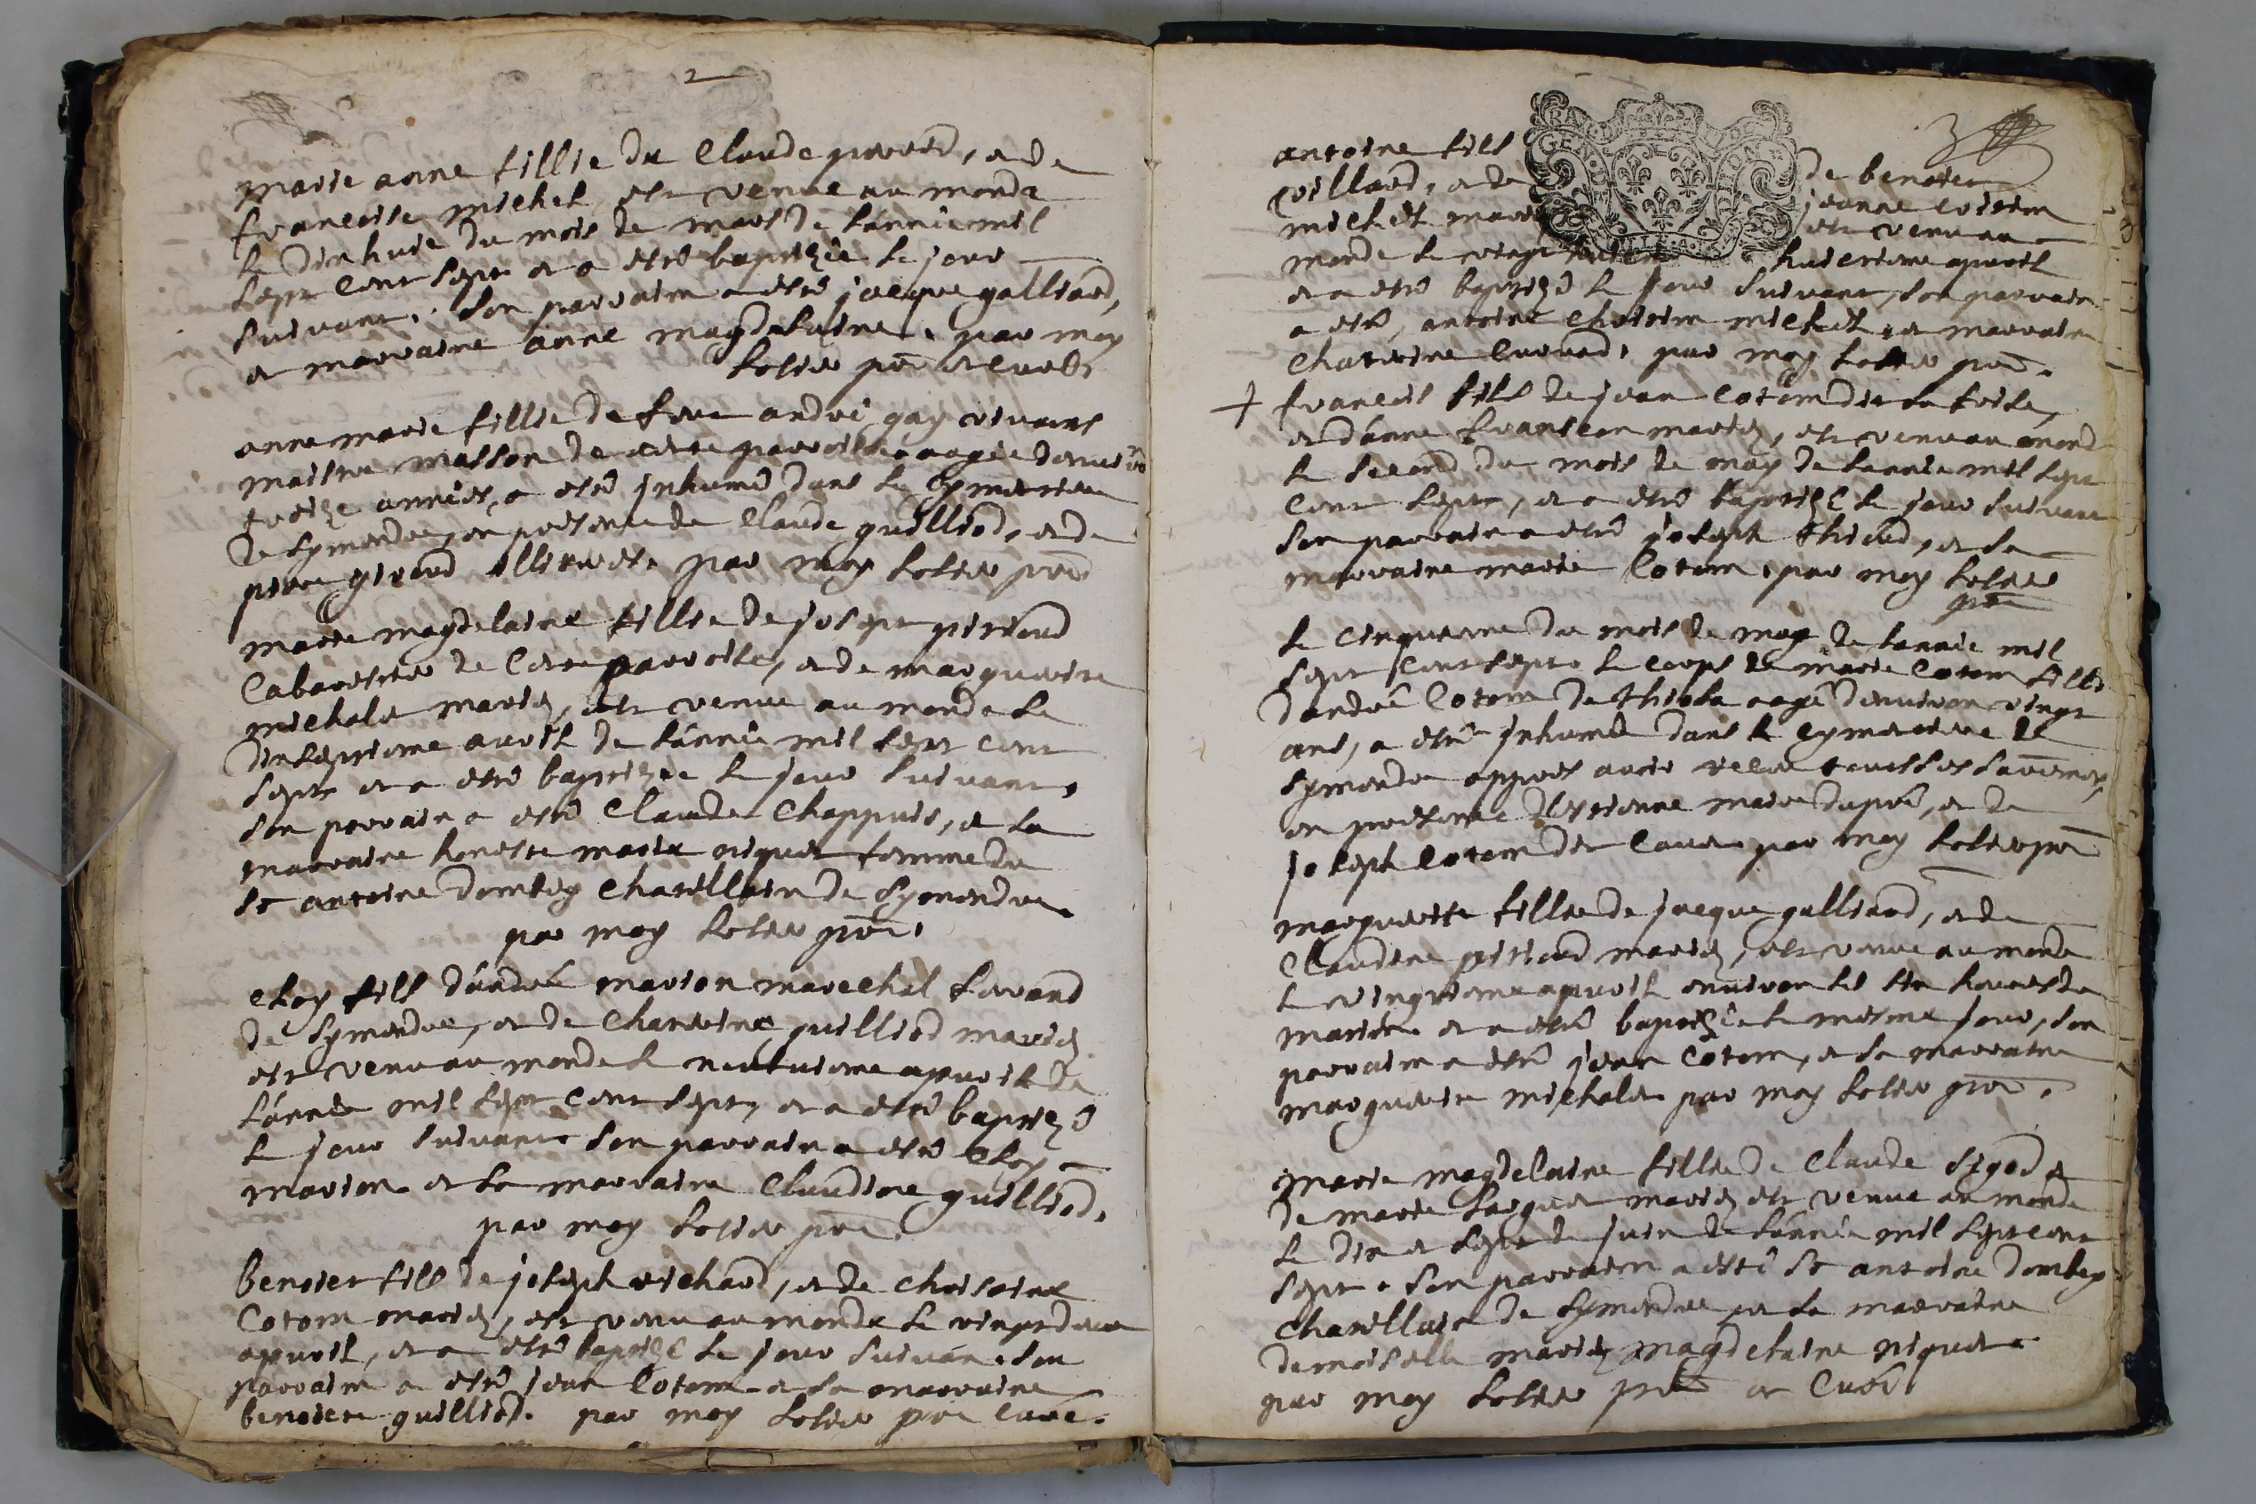 2
marie anne fillie de Claude pauvrd, et de
francoise michel est venue au monde
le dixhuit du mois de mars de lannie mil
sept cent sept et a esté baptizée le jour
suivant. Son parrain a esté jacque galliard,
et marraine anne magdelaine. par moy
pre et curé
anne marie fillie de feu andré gay vivant
maistre masson de cette parroisse aagée denviron
treize années, a esté inhumé dans le cymetiere
de Symondre, en presence de Claude guilliod, et de
piere girard illiterés. par moy pre
marie magdelaine fillie de josept piriaud
Cabarestier de Cette parroisse, et de marguerite
michale mariés, est venue au monde le
dixseptieme avril de lannie mil sept cent
sept et a esté baptizée le jour suivant,
son parrain a esté Claude Chappuis, et la
marraine honeste marie niquet femme du
Sr antoine dombey Chatellain de Symondre
par moy pre.
Eloy fils dandré marion marechal ferrand
de Symondre, et de Chaterine guilliod mariés
est venu au monde le neufvieme apvril de
lannée mil sept cent sept, et a esté baptizé
le jour suivant Son parrain a esté Eloy
marion et la marraine Claudine guilliod.
par moy pre
benoict fils de joseph richard, et de
Cotton mariés, est venu au monde le vingtdeux
apvril, et a esté baptizé le jour suivan. son
parrain a esté jean Cotton et la marraine
benoicte guilliod. par moy pre curé.
3
antoine fils de benoict
Villard, et de jeanne
michel mariés est venu au
monde le vingt huictieme apvril
et a esté baptizé le jour suivant, son parrain
a esté, antoine michel, et marraine
Chaterine Evrard, par moy pre.
francois fils de jean Cotton dit
et danne francon mariés, est venu au mond
le second du mois de may de lannée mil sept
cent sept, et a esté baptizé le jour suivant
son parrain a esté joseph, et la
marraine marie Cotton, par moy
pre
le cinquieme du mois de may de lannée mil
sept cent sept. le corps de marie Cotton fille
dandré Cotton de aagé denviron vingt
ans, a esté inhumé dans le cymetiere de
Symondre appres avoir receu tous les sacremts,
en presence destienne maire dupré, et de
joseph Cotton dit par moy pre
marguerite fillie de jacque galliard, et de
Claudine piriaud mariés, est venue au monde
le vingtieme apvril environ les six heures du
matin et a esté baptizée le mesme jour, son
parrain a esté jean Cotton, et la marraine
marguerite michale. par moy pre.
marie magdelaine fillie de Claude Sigod et
de marie mariés est venue au monde
le dix et sept de juin de lannée mil sept cent
sept. Son parrain a esté Sr antoine dombey
Chatellain de Symondre et la marraine
demoiselle marie magdelaine niquet
par moy pre et Curé